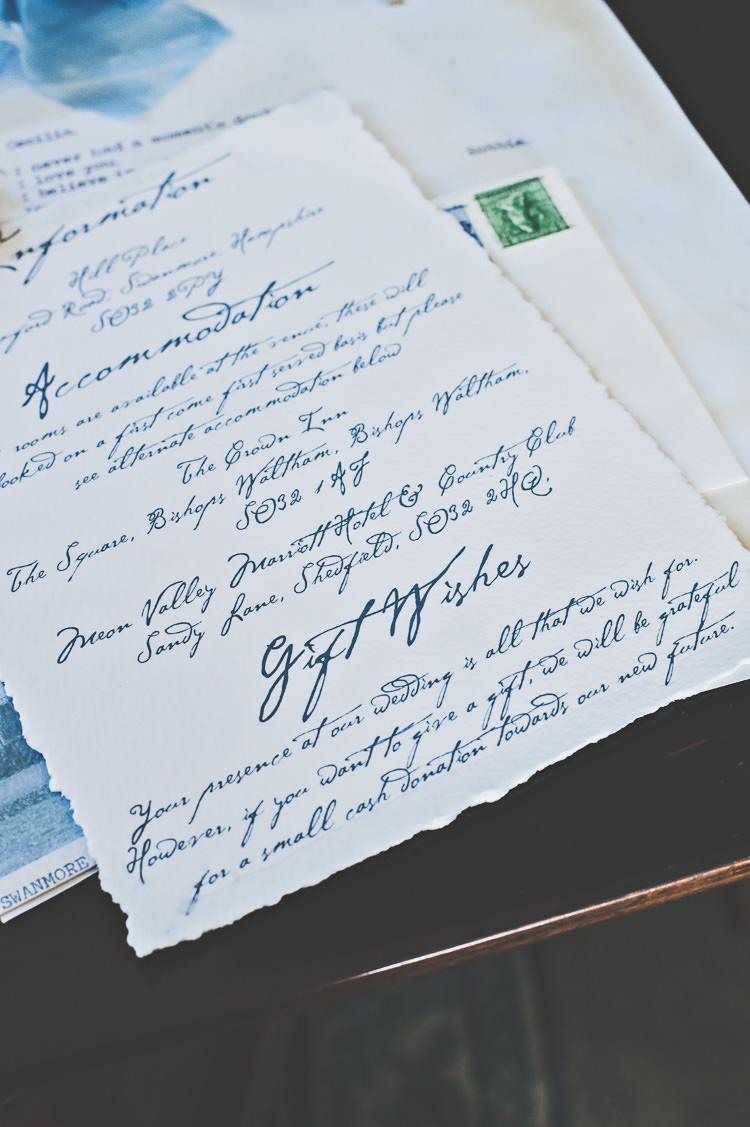 Cecilia,
I never had a moment's
I love you.
I believe in
Robbie
Information
Hill Place
Road, Swanmore, Hampshire
SO32 2PY
Accommodation
rooms are available at the venue, these will
booked on a first come first served basis but please
see alternate accommodation below
The Crown Inn
The Square, Bishops Waltham, Bishops Waltham,
SO32 1AF
Meon Valley Marriott Hotel & Country Club
Sandy Lane, Shedfield, SO32 2HQ.
Gift Wishes
Your presence at our wedding is all that we wish for.
However, if you want to give a gift, we will be grateful
for a small cash donation towards our new future.
SWANMORE